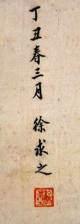 丁丑春三月 徐求之